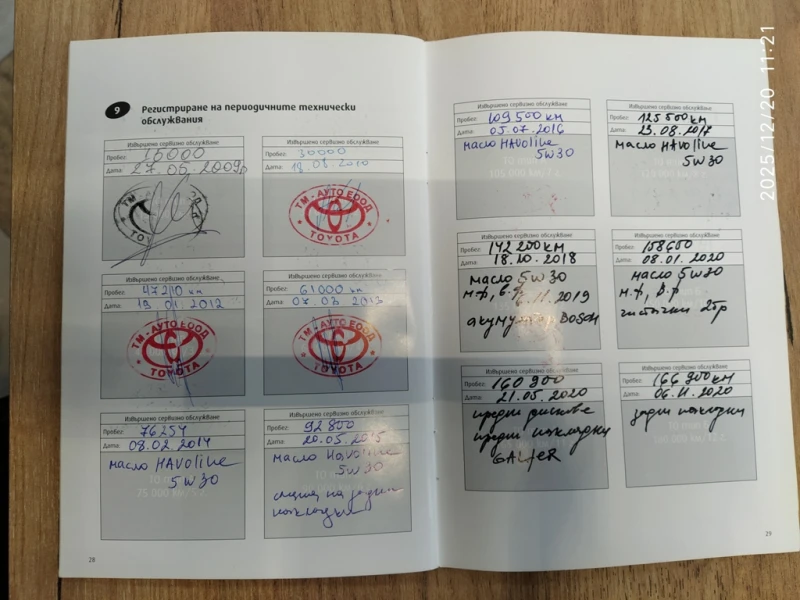 9 Регистриране на периодичните технически
обслужвания
Извършено сервизно обслужване
Пробег:
Дата: 27.05.2009г
Извършено сервизно обслужване
Пробег: 30000
Дата: 18.08.2010
ТМ - АУТО ЕООД
TOYOTA
Извършено сервизно обслужване
Пробег: 47210 km
Дата: 13 01 2012
ТМ - АУТО ЕООД
TOYOTA
Извършено сервизно обслужване
Пробег: 61000 km
Дата: 07 03 2013
ТМ - АУТО ЕООД
TOYOTA
Извършено сервизно обслужване
Пробег: 76254
Дата: 08.02 2014
масло HAVOline
5W30
75 000 km/5 г.
Извършено сервизно обслужване
Пробег: 92 800
Дата: 20.05.2015
масло HAVOline
5W30
смяна на задни
накладки
28
Извършено сервизно обслужване
Пробег: 109 500 км
Дата: 05.07.2016
масло HAVOline
5W30
105 000 km/7 г.
Извършено сервизно обслужване
Пробег: 125 500 км
Дата: 23.08.2017
масло HAVOline
5W30
Извършено сервизно обслужване
Пробег: 142 200 км
Дата: 18.10.2018
масло 5W30
м.ф, в.ф
6.11.2019
акумулатор BOSCH
Извършено сервизно обслужване
Пробег: 158600
Дата: 08.01.2020
масло 5W30
м.ф, в.ф
чистачки 2бр
Извършено сервизно обслужване
Пробег: 160 900
Дата: 21.05.2020
предни дискове
предни накладки
Извършено сервизно обслужване
Пробег: 166 900 км
Дата: 06.11.2020
задни накладки
29
2025/12/20 11:21